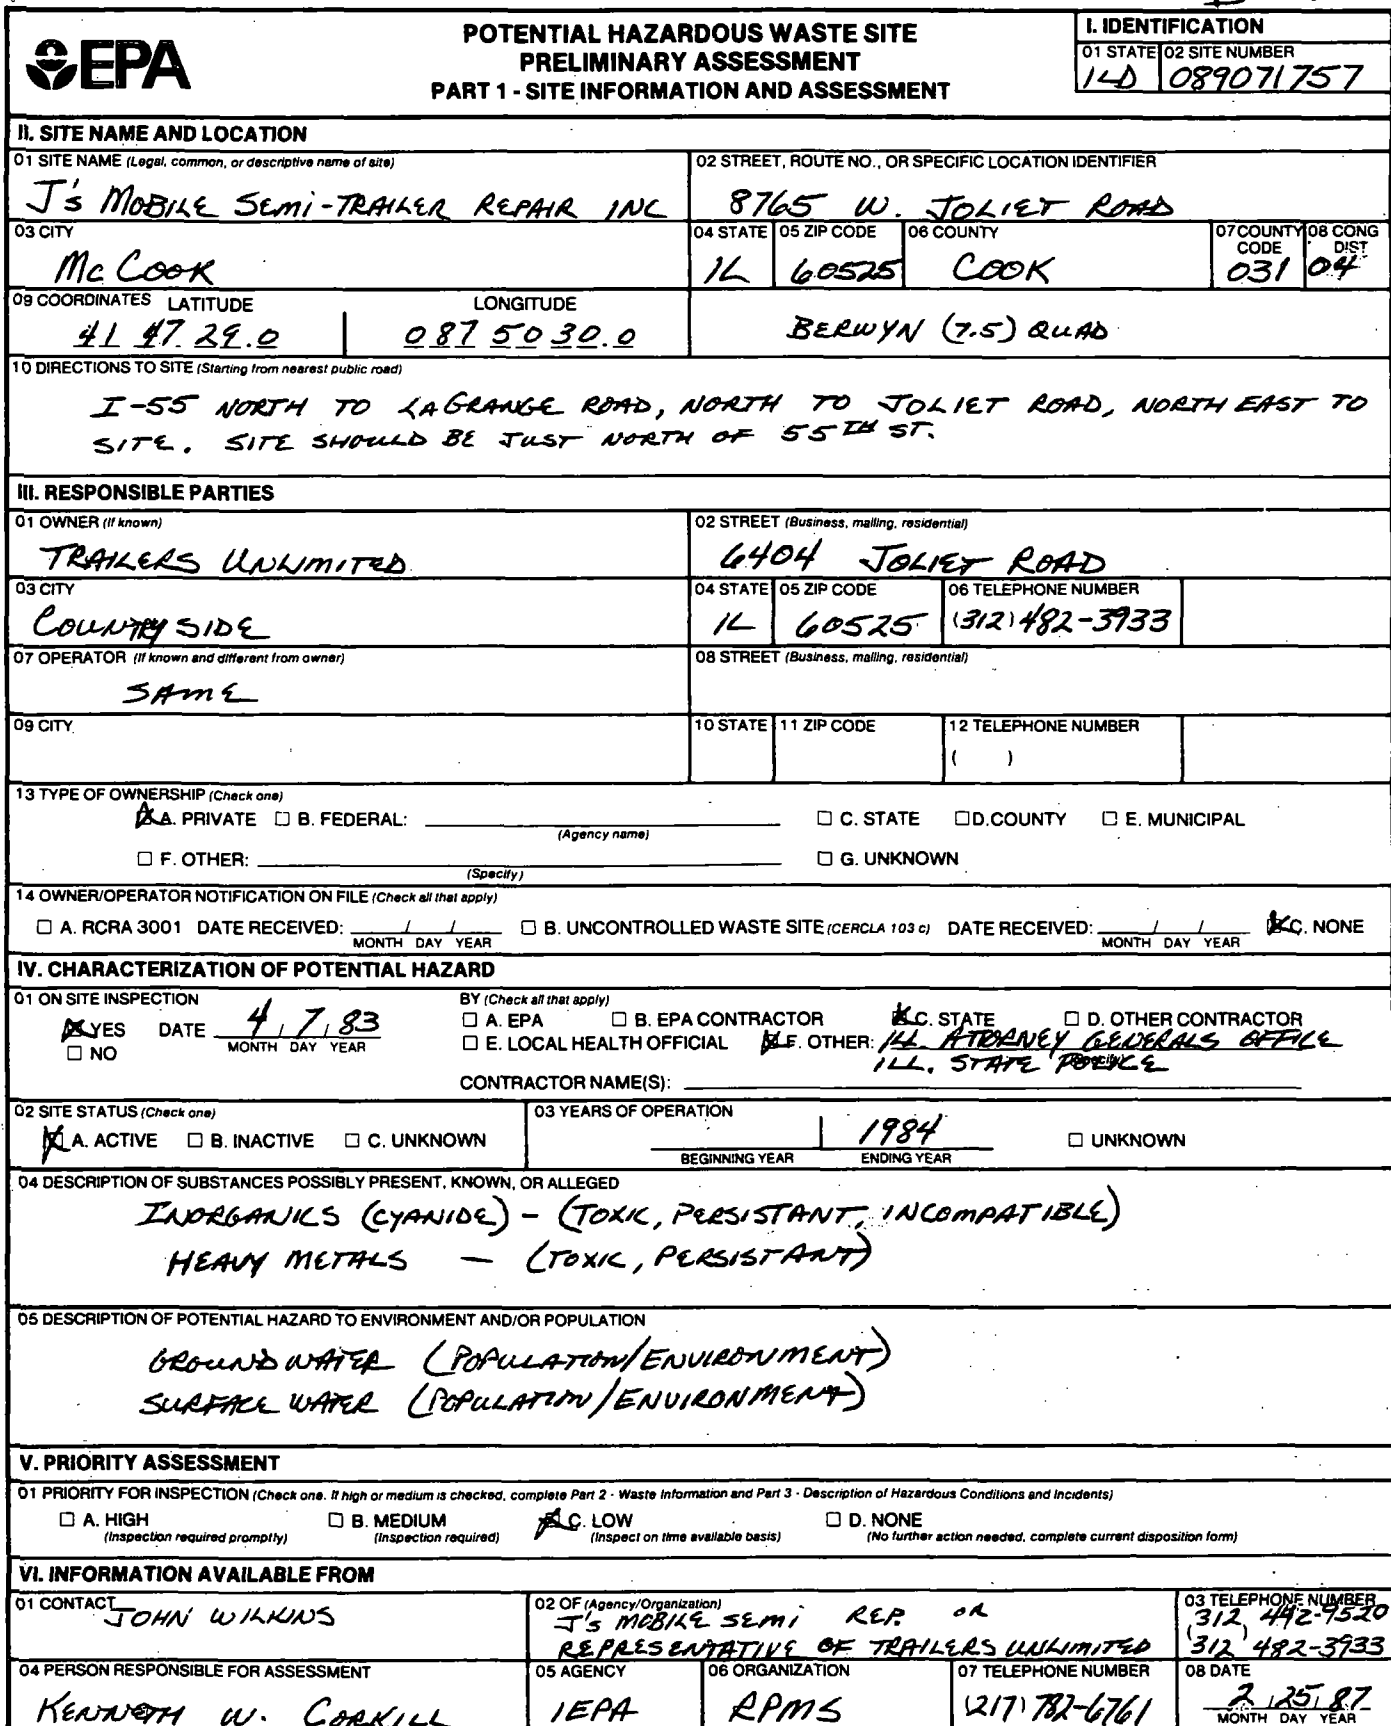 EPA
POTENTIAL HAZARDOUS WASTE SITE
PRELIMINARY ASSESSMENT
PART 1 - SITE INFORMATION AND ASSESSMENT
I. IDENTIFICATION
01 STATE 02 SITE NUMBER
ILD 089071757
II. SITE NAME AND LOCATION
01 SITE NAME (Legal, common, or descriptive name of site)
J's MOBILE SEMI-TRAILER REPAIR INC
02 STREET, ROUTE NO., OR SPECIFIC LOCATION IDENTIFIER
8765 W. JOLIET ROAD
03 CITY
McCOOK
04 STATE
IL
05 ZIP CODE
60525
06 COUNTY
COOK
07 COUNTY CODE
031
08 CONG DIST
04
09 COORDINATES LATITUDE LONGITUDE
41 47 29.0 087 50 30.0
BERWYN (7.5) QUAD
10 DIRECTIONS TO SITE (Starting from nearest public road)
I-55 NORTH TO LAGRANGE ROAD, NORTH TO JOLIET ROAD, NORTH EAST TO
SITE. SITE SHOULD BE JUST NORTH OF 55TH ST.
III. RESPONSIBLE PARTIES
01 OWNER (If known)
TRAILERS UNLIMITED
02 STREET (Business, mailing, residential)
6404 JOLIET ROAD
03 CITY
COUNTRYSIDE
04 STATE
IL
05 ZIP CODE
60525
06 TELEPHONE NUMBER
(312) 482-3933
07 OPERATOR (If known and different from owner)
SAME
08 STREET (Business, mailing, residential)
09 CITY
10 STATE 11 ZIP CODE 12 TELEPHONE NUMBER
( )
13 TYPE OF OWNERSHIP (Check one)
☒ A. PRIVATE ☐ B. FEDERAL: ____ ☐ C. STATE ☐ D. COUNTY ☐ E. MUNICIPAL
(Agency name)
☐ F. OTHER: ____ ☐ G. UNKNOWN
(Specify)
14 OWNER/OPERATOR NOTIFICATION ON FILE (Check all that apply)
☐ A. RCRA 3001 DATE RECEIVED: __/__/__ ☐ B. UNCONTROLLED WASTE SITE (CERCLA 103 c) DATE RECEIVED: __/__/__ ☒ C. NONE
MONTH DAY YEAR MONTH DAY YEAR
IV. CHARACTERIZATION OF POTENTIAL HAZARD
01 ON SITE INSPECTION
☒ YES DATE 4/7/83
☐ NO MONTH DAY YEAR
BY (Check all that apply)
☐ A. EPA ☐ B. EPA CONTRACTOR ☒ C. STATE ☐ D. OTHER CONTRACTOR
☐ E. LOCAL HEALTH OFFICIAL ☒ F. OTHER: ILL. ATTORNEY GENERALS OFFICE
ILL. STATE POLICE
CONTRACTOR NAME(S): ____
02 SITE STATUS (Check one)
☒ A. ACTIVE ☐ B. INACTIVE ☐ C. UNKNOWN
03 YEARS OF OPERATION
____ | 1984 ☐ UNKNOWN
BEGINNING YEAR ENDING YEAR
04 DESCRIPTION OF SUBSTANCES POSSIBLY PRESENT, KNOWN, OR ALLEGED
INORGANICS (CYANIDE) - (TOXIC, PERSISTANT, INCOMPATIBLE)
HEAVY METALS - (TOXIC, PERSISTANT)
05 DESCRIPTION OF POTENTIAL HAZARD TO ENVIRONMENT AND/OR POPULATION
GROUND WATER (POPULATION/ENVIRONMENT)
SURFACE WATER (POPULATION/ENVIRONMENT)
V. PRIORITY ASSESSMENT
01 PRIORITY FOR INSPECTION (Check one. If high or medium is checked, complete Part 2 - Waste Information and Part 3 - Description of Hazardous Conditions and Incidents)
☐ A. HIGH ☐ B. MEDIUM ☒ C. LOW ☐ D. NONE
(Inspection required promptly) (Inspection required) (Inspect on time available basis) (No further action needed, complete current disposition form)
VI. INFORMATION AVAILABLE FROM
01 CONTACT
JOHN WILKINS
02 OF (Agency/Organization)
J's MOBILE SEMI REP. OR
REPRESENTATIVE OF TRAILERS UNLIMITED
03 TELEPHONE NUMBER
312 442-9520
312 482-3933
04 PERSON RESPONSIBLE FOR ASSESSMENT
KENNETH W. CORKILL
05 AGENCY
IEPA
06 ORGANIZATION
RPMS
07 TELEPHONE NUMBER
(217) 782-6761
08 DATE
2/25/87
MONTH DAY YEAR